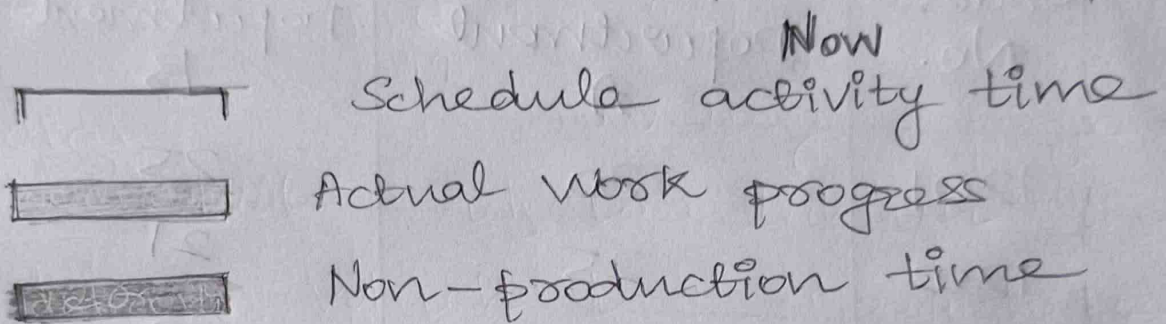 Now
Schedule activity time
Actual Work progress
Non-production time